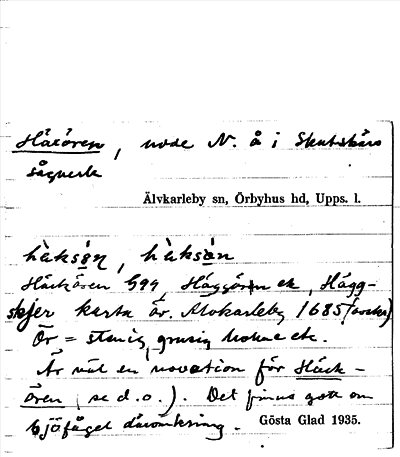 Häxören, udde N. å i Skutskärs
sågverk
Älvkarleby sn, Örbyhus hd, Upps. l.
hàksə̀ɳ, hàksə̀n
Häckören G99, Häggören ek, Hägg-
skjer karta öv. Elvkarleby 1685
Ör = stenig, grusig holme etc.
Är väl en novation för Häck-
ören, se d.o.). Det finns gott om
sjöfågel däromkring.
Gösta Glad 1935.